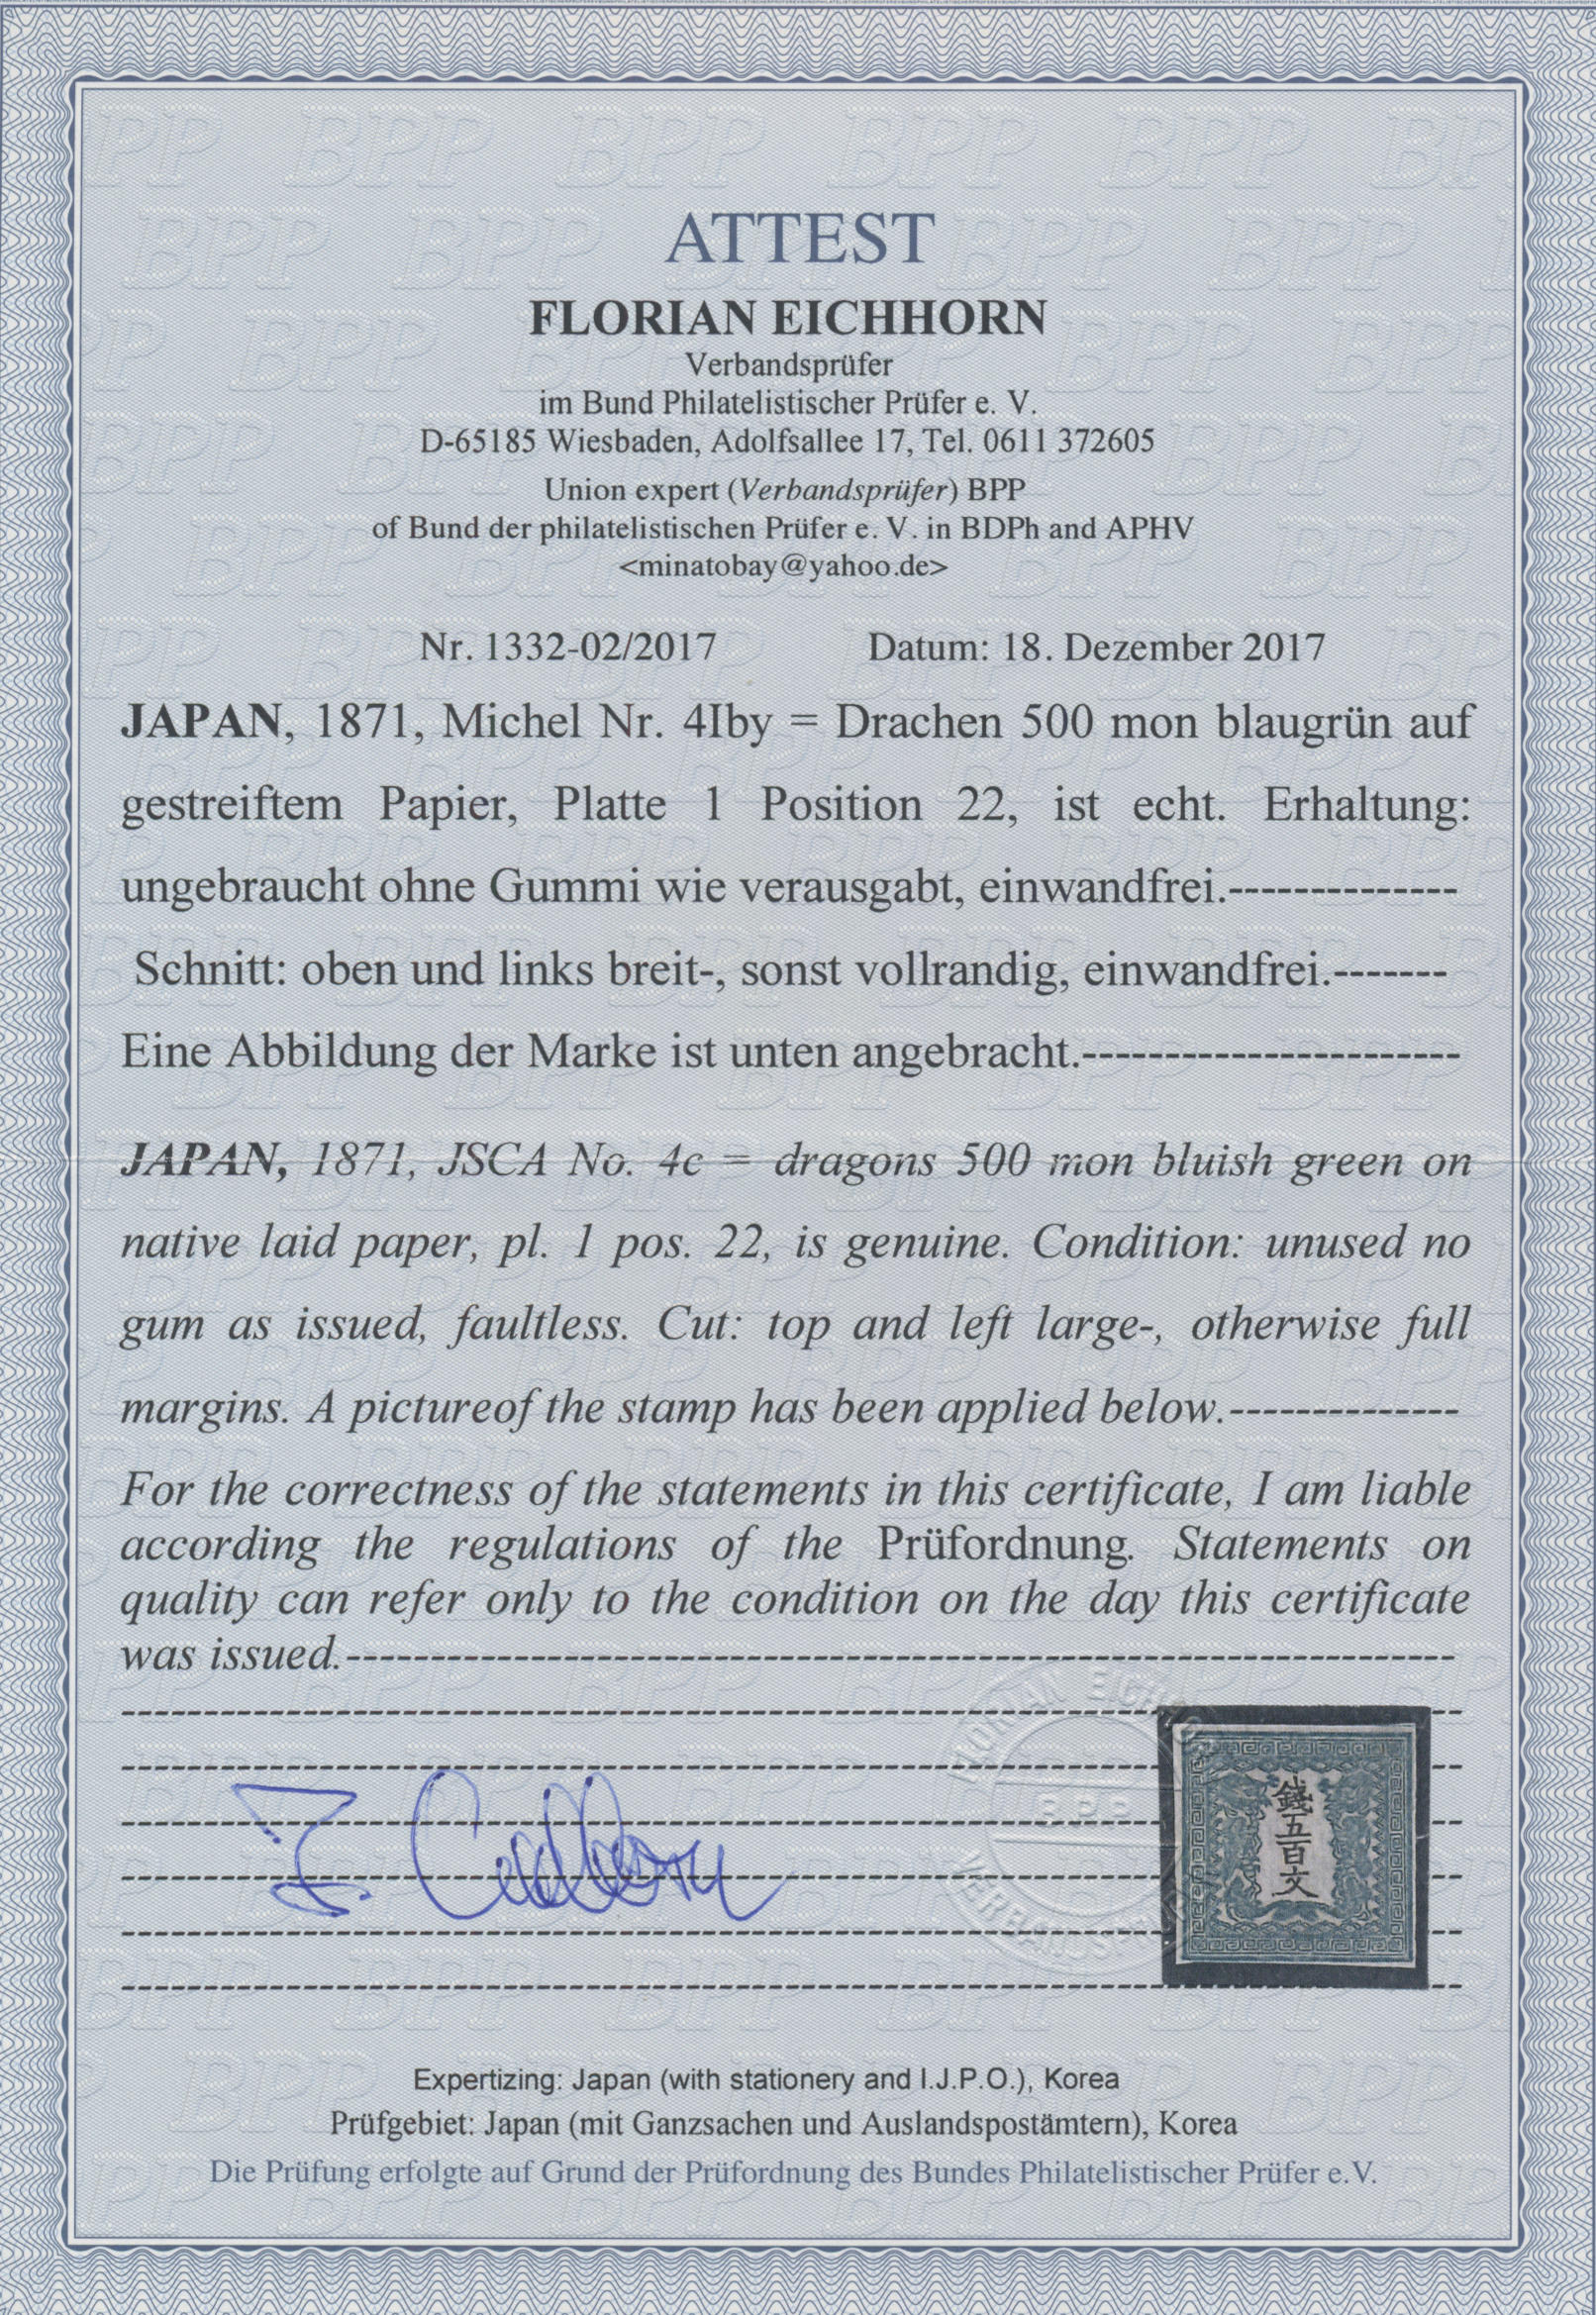 ATTEST
FLORIAN EICHHORN
Verbandsprüfer
im Bund Philatelistischer Prüfer e. V.
D-65185 Wiesbaden, Adolfsallee 17, Tel. 0611 372605
Union expert (Verbandsprüfer) BPP
of Bund der philatelistischen Prüfer e. V. in BDPh and APHV
<minatobay@yahoo.de>
Nr. 1332-02/2017 Datum: 18. Dezember 2017
JAPAN, 1871, Michel Nr. 4Iby = Drachen 500 mon blaugrün auf
gestreiftem Papier, Platte 1 Position 22, ist echt. Erhaltung:
ungebraucht ohne Gummi wie verausgabt, einwandfrei.--------------
Schnitt: oben und links breit-, sonst vollrandig, einwandfrei.-------
Eine Abbildung der Marke ist unten angebracht.-----------------------
JAPAN, 1871, JSCA No. 4c = dragons 500 mon bluish green on
native laid paper, pl. 1 pos. 22, is genuine. Condition: unused no
gum as issued, faultless. Cut: top and left large-, otherwise full
margins. A pictureof the stamp has been applied below.--------------
For the correctness of the statements in this certificate, I am liable
according the regulations of the Prüfordnung. Statements on
quality can refer only to the condition on the day this certificate
was issued.--------------------------------------------------------------------
FLORIAN EICHHORN
BPP
F. Eichhorn
錢五百文
Expertizing: Japan (with stationery and I.J.P.O.), Korea
Prüfgebiet: Japan (mit Ganzsachen und Auslandspostämtern), Korea
Die Prüfung erfolgte auf Grund der Prüfordnung des Bundes Philatelistischer Prüfer e.V.